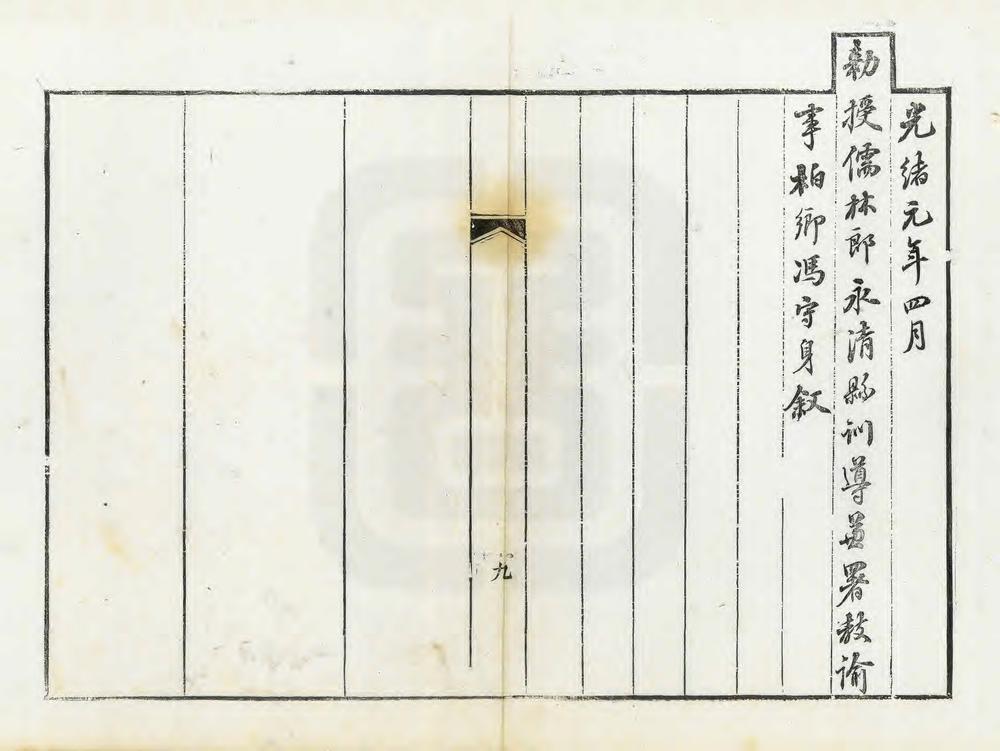 光緒元年四月
勅授儒林郎永清縣訓導兼署教諭
事柏鄉馮守身敘
九